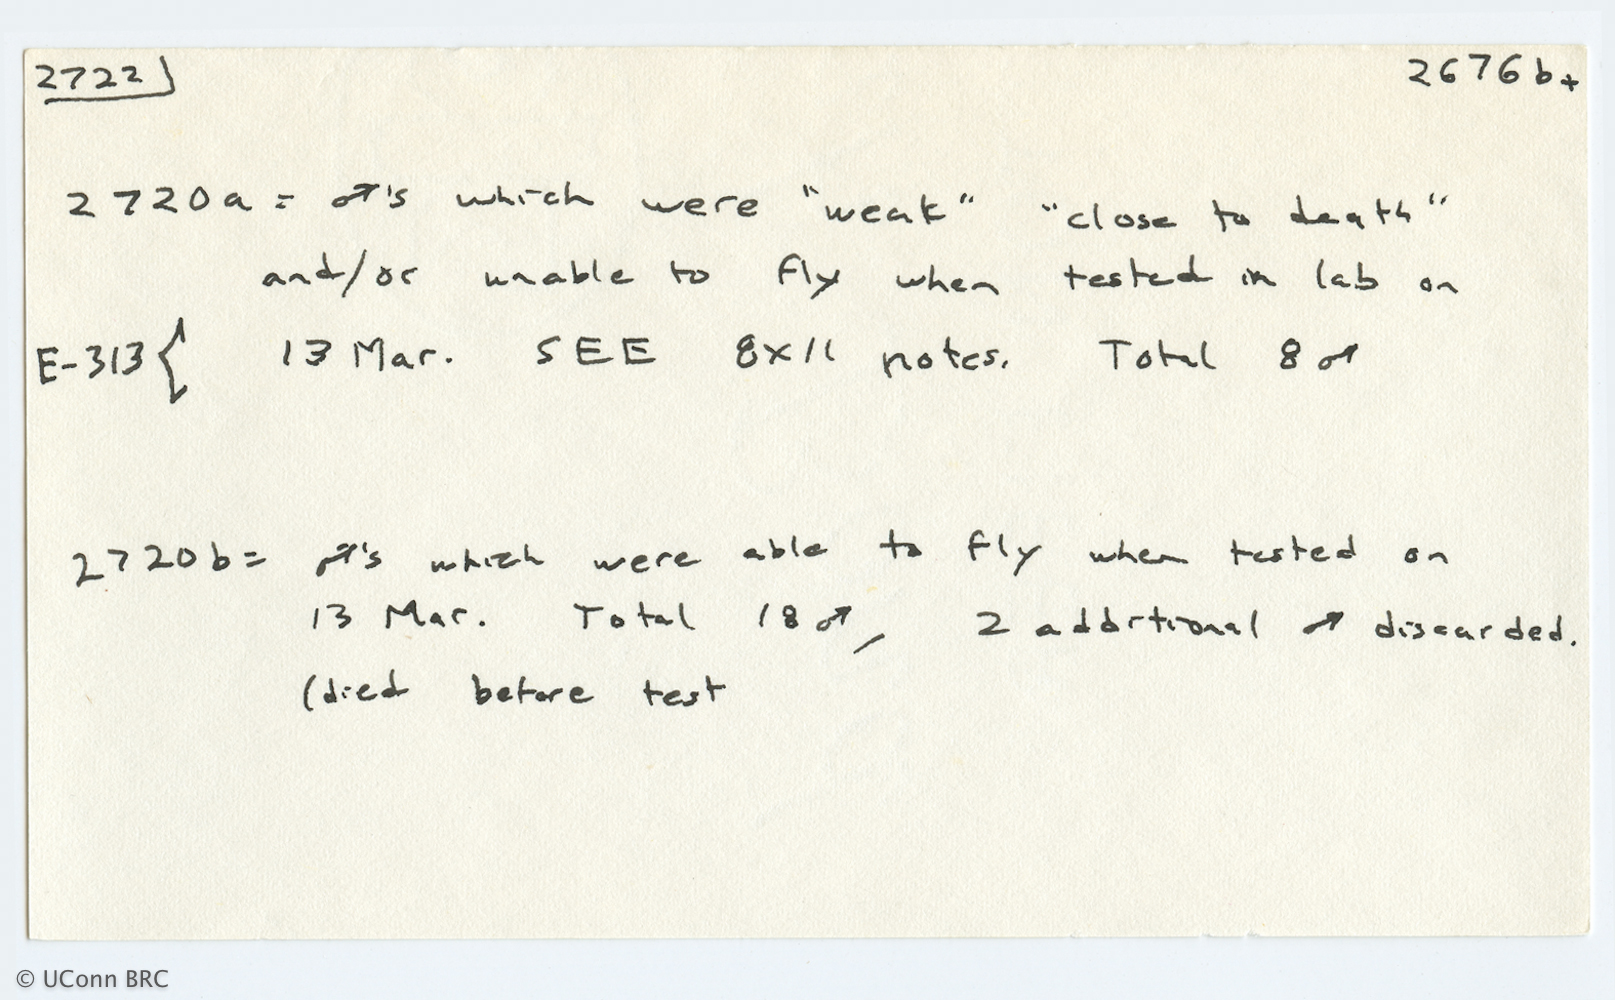 2722 2676b+
2720a = ♂'s which were "weak" "close to death"
and/or unable to fly when tested in lab on
E-313{ 13 Mar. SEE 8x11 notes. Total 8 ♂
2720b = ♂'s which were able to fly when tested on
13 Mar. Total 18 ♂, 2 additional ♂ discarded.
(died before test
© UConn BRC